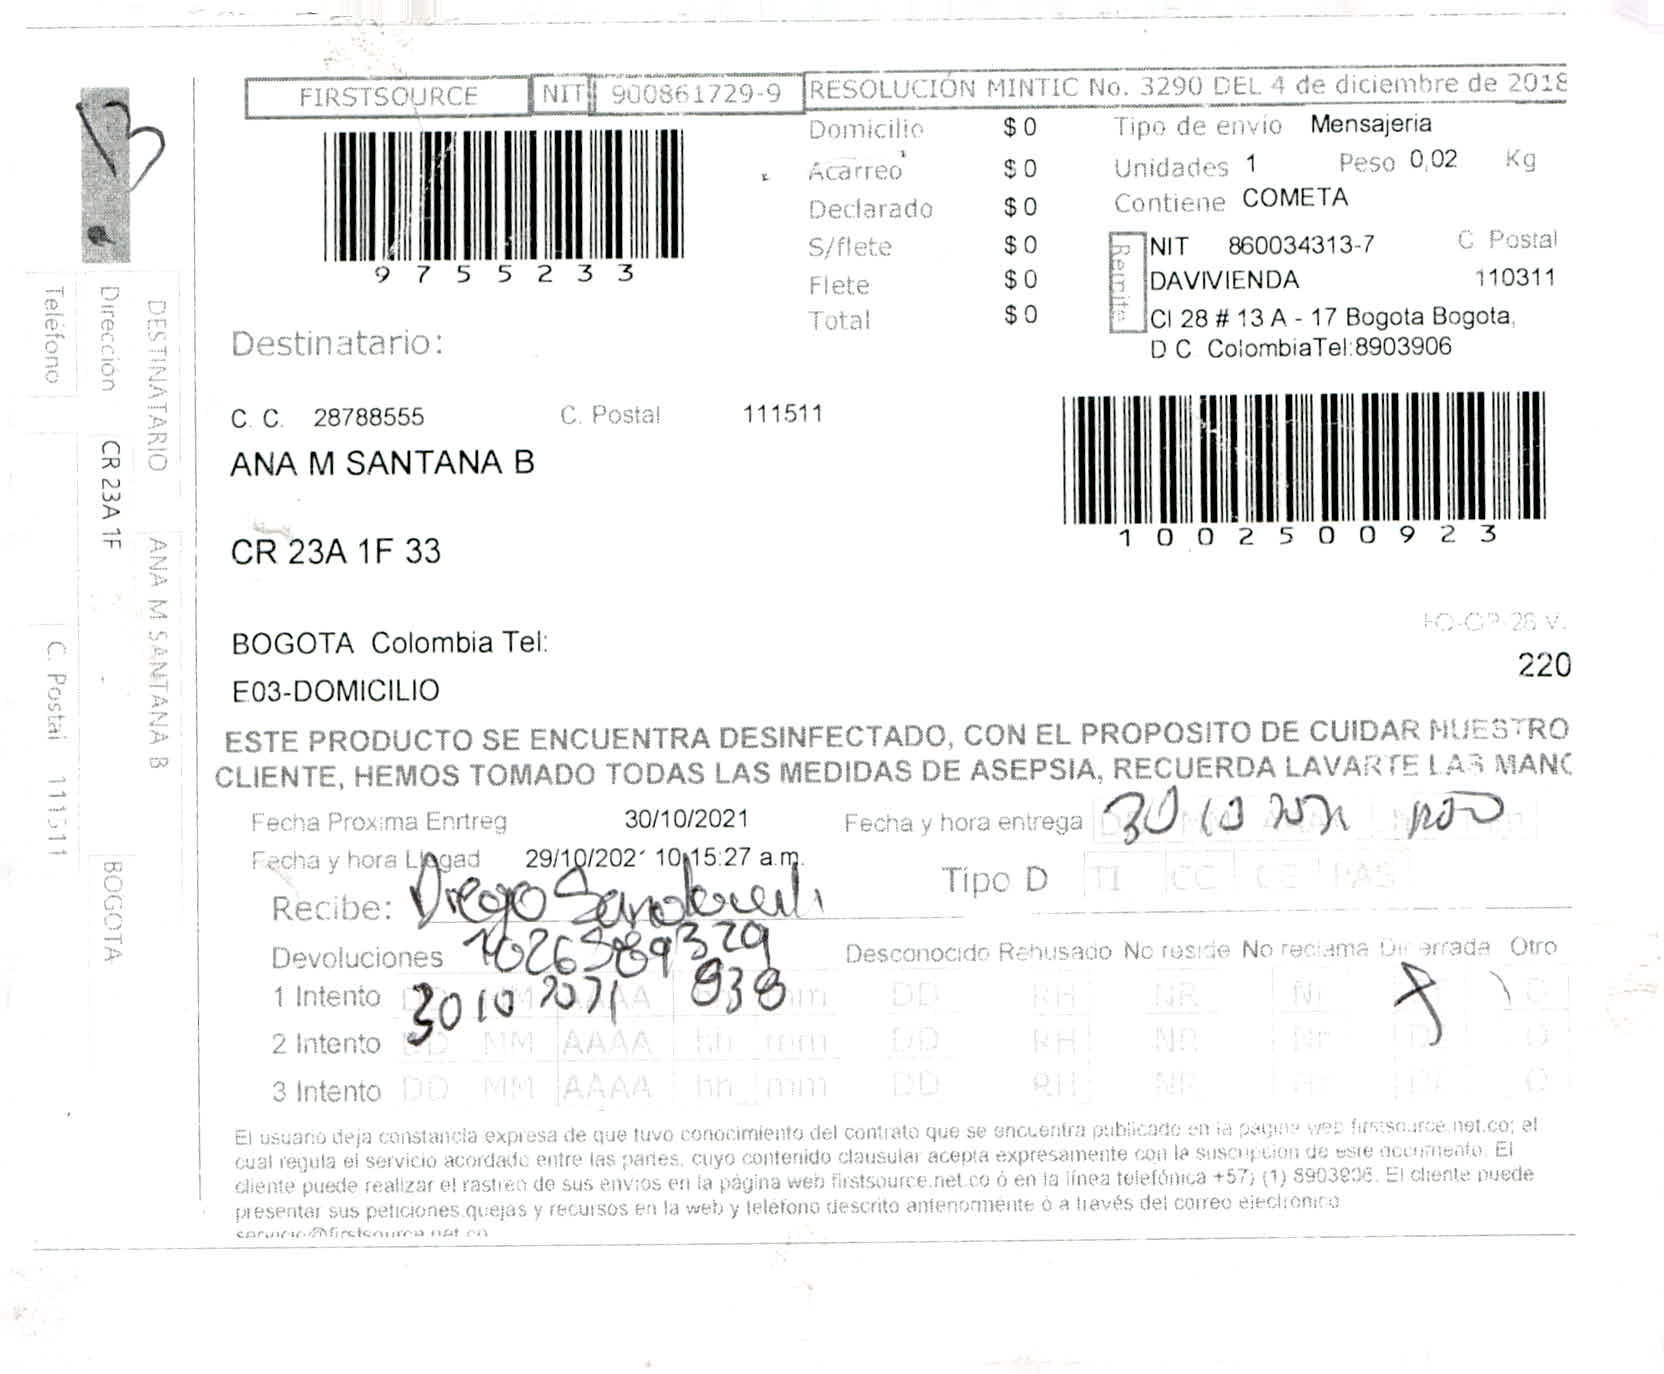 FIRSTSOURCE NIT 900861729-9 RESOLUCIÓN MINTIC No. 3290 DEL 4 de diciembre de 2018
97555233
Domicilio $ 0
Acarreo $ 0
Declarado $ 0
S/flete $ 0
Flete $ 0
Total $ 0
Tipo de envío Mensajeria
Unidades 1 Peso 0,02 Kg
Contiene COMETA
Remite
NIT 860034313-7 C Postal
DAVIVIENDA 110311
Cl 28 # 13 A - 17 Bogota Bogota,
D C ColombiaTel:8903906
Destinatario:
C. C. 28788555 C. Postal 111511
ANA M SANTANA B
1002500923
CR 23A 1F 33
BOGOTA Colombia Tel:
E03-DOMICILIO
220
ESTE PRODUCTO SE ENCUENTRA DESINFECTADO, CON EL PROPOSITO DE CUIDAR NUESTRO
CLIENTE, HEMOS TOMADO TODAS LAS MEDIDAS DE ASEPSIA, RECUERDA LAVARTE LAS MANO
Fecha Proxima Enrtreg 30/10/2021 Fecha y hora entrega 30 10 2021
Fecha y hora Llegad 29/10/2021 10:15:27 a.m.
Tipo D TI CC CE PAS
Recibe: Diego
Devoluciones Desconocido Rehusado No reside No reclama Dir errada Otro
1 Intento 30 10 2021 838 mm DD RH NR
2 Intento DD MM AAAA hh mm DD RH NR Nr O
3 Intento DD MM AAAA hh mm DD RH NR O
El usuario deja constancia expresa de que tuvo conocimiento del contrato que se encuentra publicado en la pagina web firstsource.net.co; el
cual regula el servicio acordado entre las partes, cuyo contenido clausular acepta expresamente con la suscripción de este documento. El
cliente puede realizar el rastreo de sus envios en la página web firstsource.net.co ó en la línea telefónica +57; (1) 8903906. El cliente puede
presentar sus peticiones,quejas y recursos en la web y telefono descrito anteriormente ó a través del correo electronico
servicio@firstsource.net.co
DESTINATARIO ANA M SANTANA B
Dirección CR 23A 1F BOGOTA
Teléfono C. Postal 111511